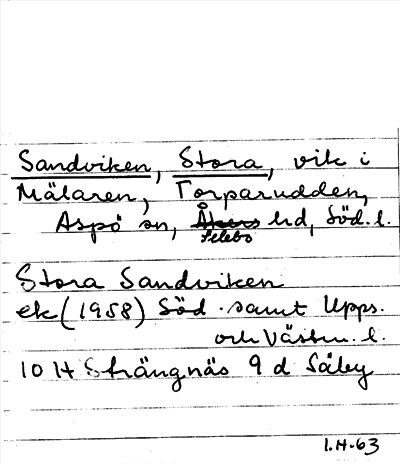 Sandviken, Stora, vik i
Mälaren, Torparudden,
Aspö sn, Åkers hd, Söd. l.
Selebo
Stora Sandviken
ek (1958) Söd. samt Upps.
och Västm. l.
10 H Strängnäs 9 d Säby
I.H-63